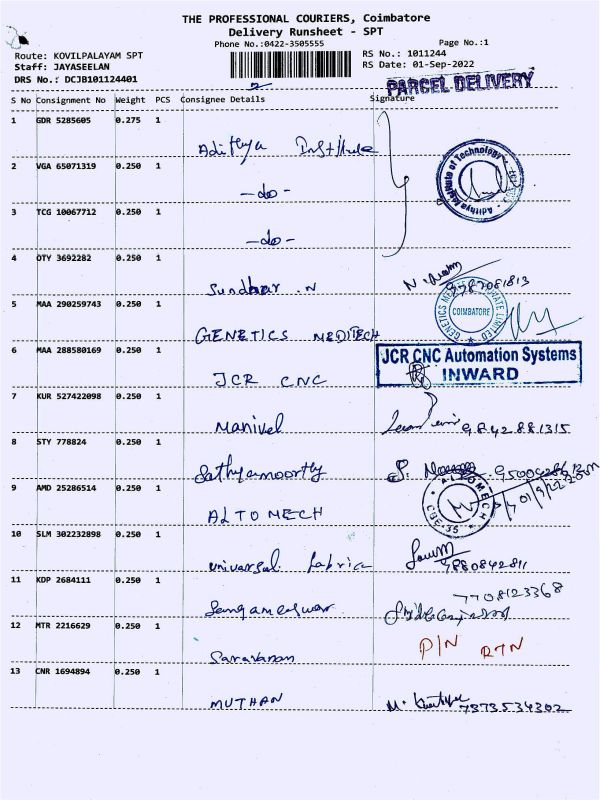 THE PROFESSIONAL COURIERS, Coimbatore
Delivery Runsheet - SPT
Phone No.:0422-3505555
Page No.:1
Route: KOVILPALAYAM SPT
Staff: JAYASEELAN
DRS No.: DCJB101124401
RS No.: 1011244
RS Date: 01-Sep-2022
PARCEL DELIVERY
S No Consignment No Weight PCS Consignee Details Signature
1 GDR 5285605 0.275 1
Adithya Institute
Adithya Institute of Technology
2 VGA 65071319 0.250 1
-do-
3 TCG 10067712 0.250 1
-do-
4 OTY 3692282 0.250 1
Sundhar .N
GENETICS
COIMBATORE
5 MAA 290259743 0.250 1
GENETICS MEDITECH
6 MAA 288580169 0.250 1
JCR CNC Automation Systems
INWARD
JCR CNC
7 KUR 527422098 0.250 1
Manivel 9842881315
8 STY 778824 0.250 1
Sathyamoorthy
9 AMD 25286514 0.250 1
ALTOMECH
CBE-35
ALTOMECH
10 SLM 302232898 0.250 1
Universal Fabrics 9880842811
11 KDP 2684111 0.250 1
7708123368
Sangameswar
12 MTR 2216629 0.250 1
P/N RTN
Saravanan
13 CNR 1694894 0.250 1
MUTHAN 7373534302